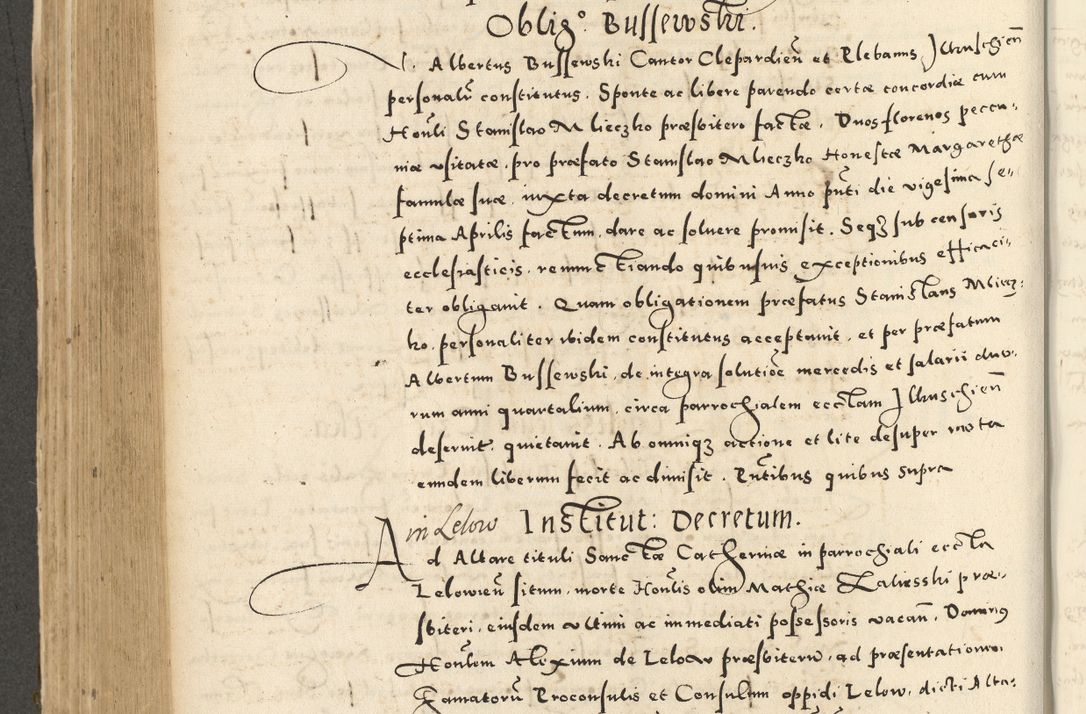 Oblig.° Bussewski.
Albertus Bussewski Cantor Clepardien̄ et Plebanus Ilkuschien̄
personalr̄ constitutus. Sponte ac libere parendo certæ concordiæ cum
Honūli Stanislao Mlieczko præsbitero factæ. Duos florenos pecu-
niæ usitatæ, pro præfato Stanislao Mlieczko Honestæ Margarethæ
famulæ suæ, iuxta decretum domini Anno pn̄ti die vigesima se-
ptima Aprilis factum, dare ac soluere promisit. Seqȝ sub censuris
ecclesiasticis, renunctiando quibusuis exceptionibus efficaci-
ter obligauit. Quam obligationem præfatus Stanislaus Mliecz-
ko, personaliter ibidem constitutus acceptauit, et per præfatum
Albertum Bussewski, de integra solutiōe mercedis et salarii duo-
rum anni quartalium, circa parrochialem ecctam Ilkuschien̄
deseruit, quietauit. Ab omniqȝ actione et lite desuper mota
eundem liberum fecit ac dimisit. Pn̄tibus quibus supra
in Lelow Institut: Decretum.
Ad Altare tituli Sanctæ Catherinæ in parrochiali eccta
Lelowien̄ situm, morte Honūlis olim Mathiæ Kaliesski præ-
sbiteri, eiusdem ultimi ac immediati possessoris vacan̄, Dominus
Honūlem Alexium de Lelow præsbiterū, ad præsentationem
Famatorū Proconsulis et Consulum oppidi Lelow, dicti Alta-